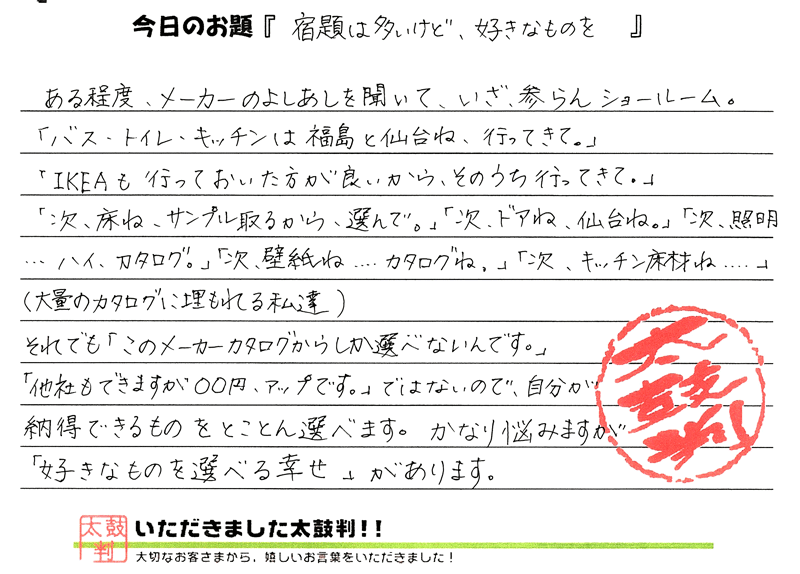 今日のお題『 宿題は多いけど、好きなものを 』
ある程度、メーカーのよしあしを聞いて、いざ、参らん ショールーム。
「バス・トイレ・キッチンは福島と仙台ね、行ってきて。」
「IKEAも行っておいた方が良いから、そのうち行ってきて。」
「次、床ね、サンプル取るから、選んで。」「次、ドアね、仙台ね。」「次、照明
… ハイ、カタログ。」「次、壁紙ね …. カタログね。」「次、キッチン床材ね ….」
(大量のカタログに埋もれてる私達)
それでも「このメーカーカタログからしか選べないんです。」
「他社もできますが〇〇円、アップです。」ではないので、自分が
納得できるものをとことん選べます。かなり悩みますが
「好きなものを選べる幸せ」があります。
太鼓判
太鼓判
いただきました太鼓判!!
大切なお客さまから、嬉しいお言葉をいただきました!